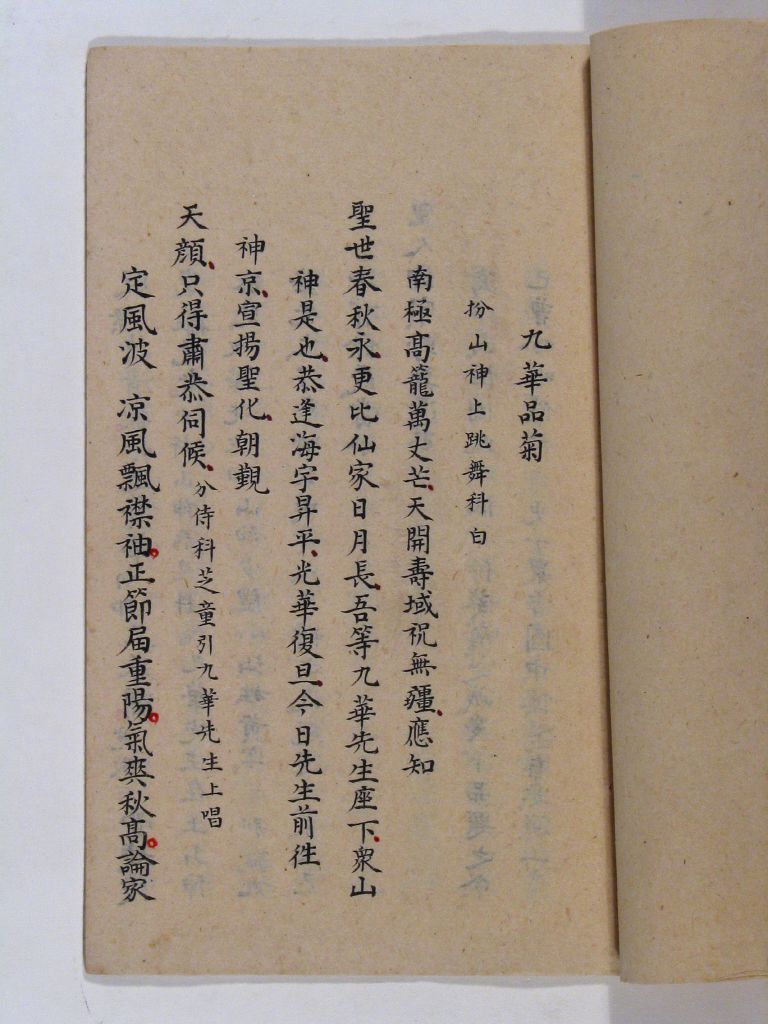 九華品菊
扮山神上跳舞科白
南極高籠萬丈芒天開壽域祝無疆應知
聖世春秋永更比仙家日月長吾等九華先生座下衆山
神是也恭逢海宇昇平光華復旦今日先生前徃
神京宣揚聖化朝觀
天顔只得肅恭伺候分侍科芝童引九華先生上唱
定風波 凉風飄襟袖正節届重陽氣爽秋高論家